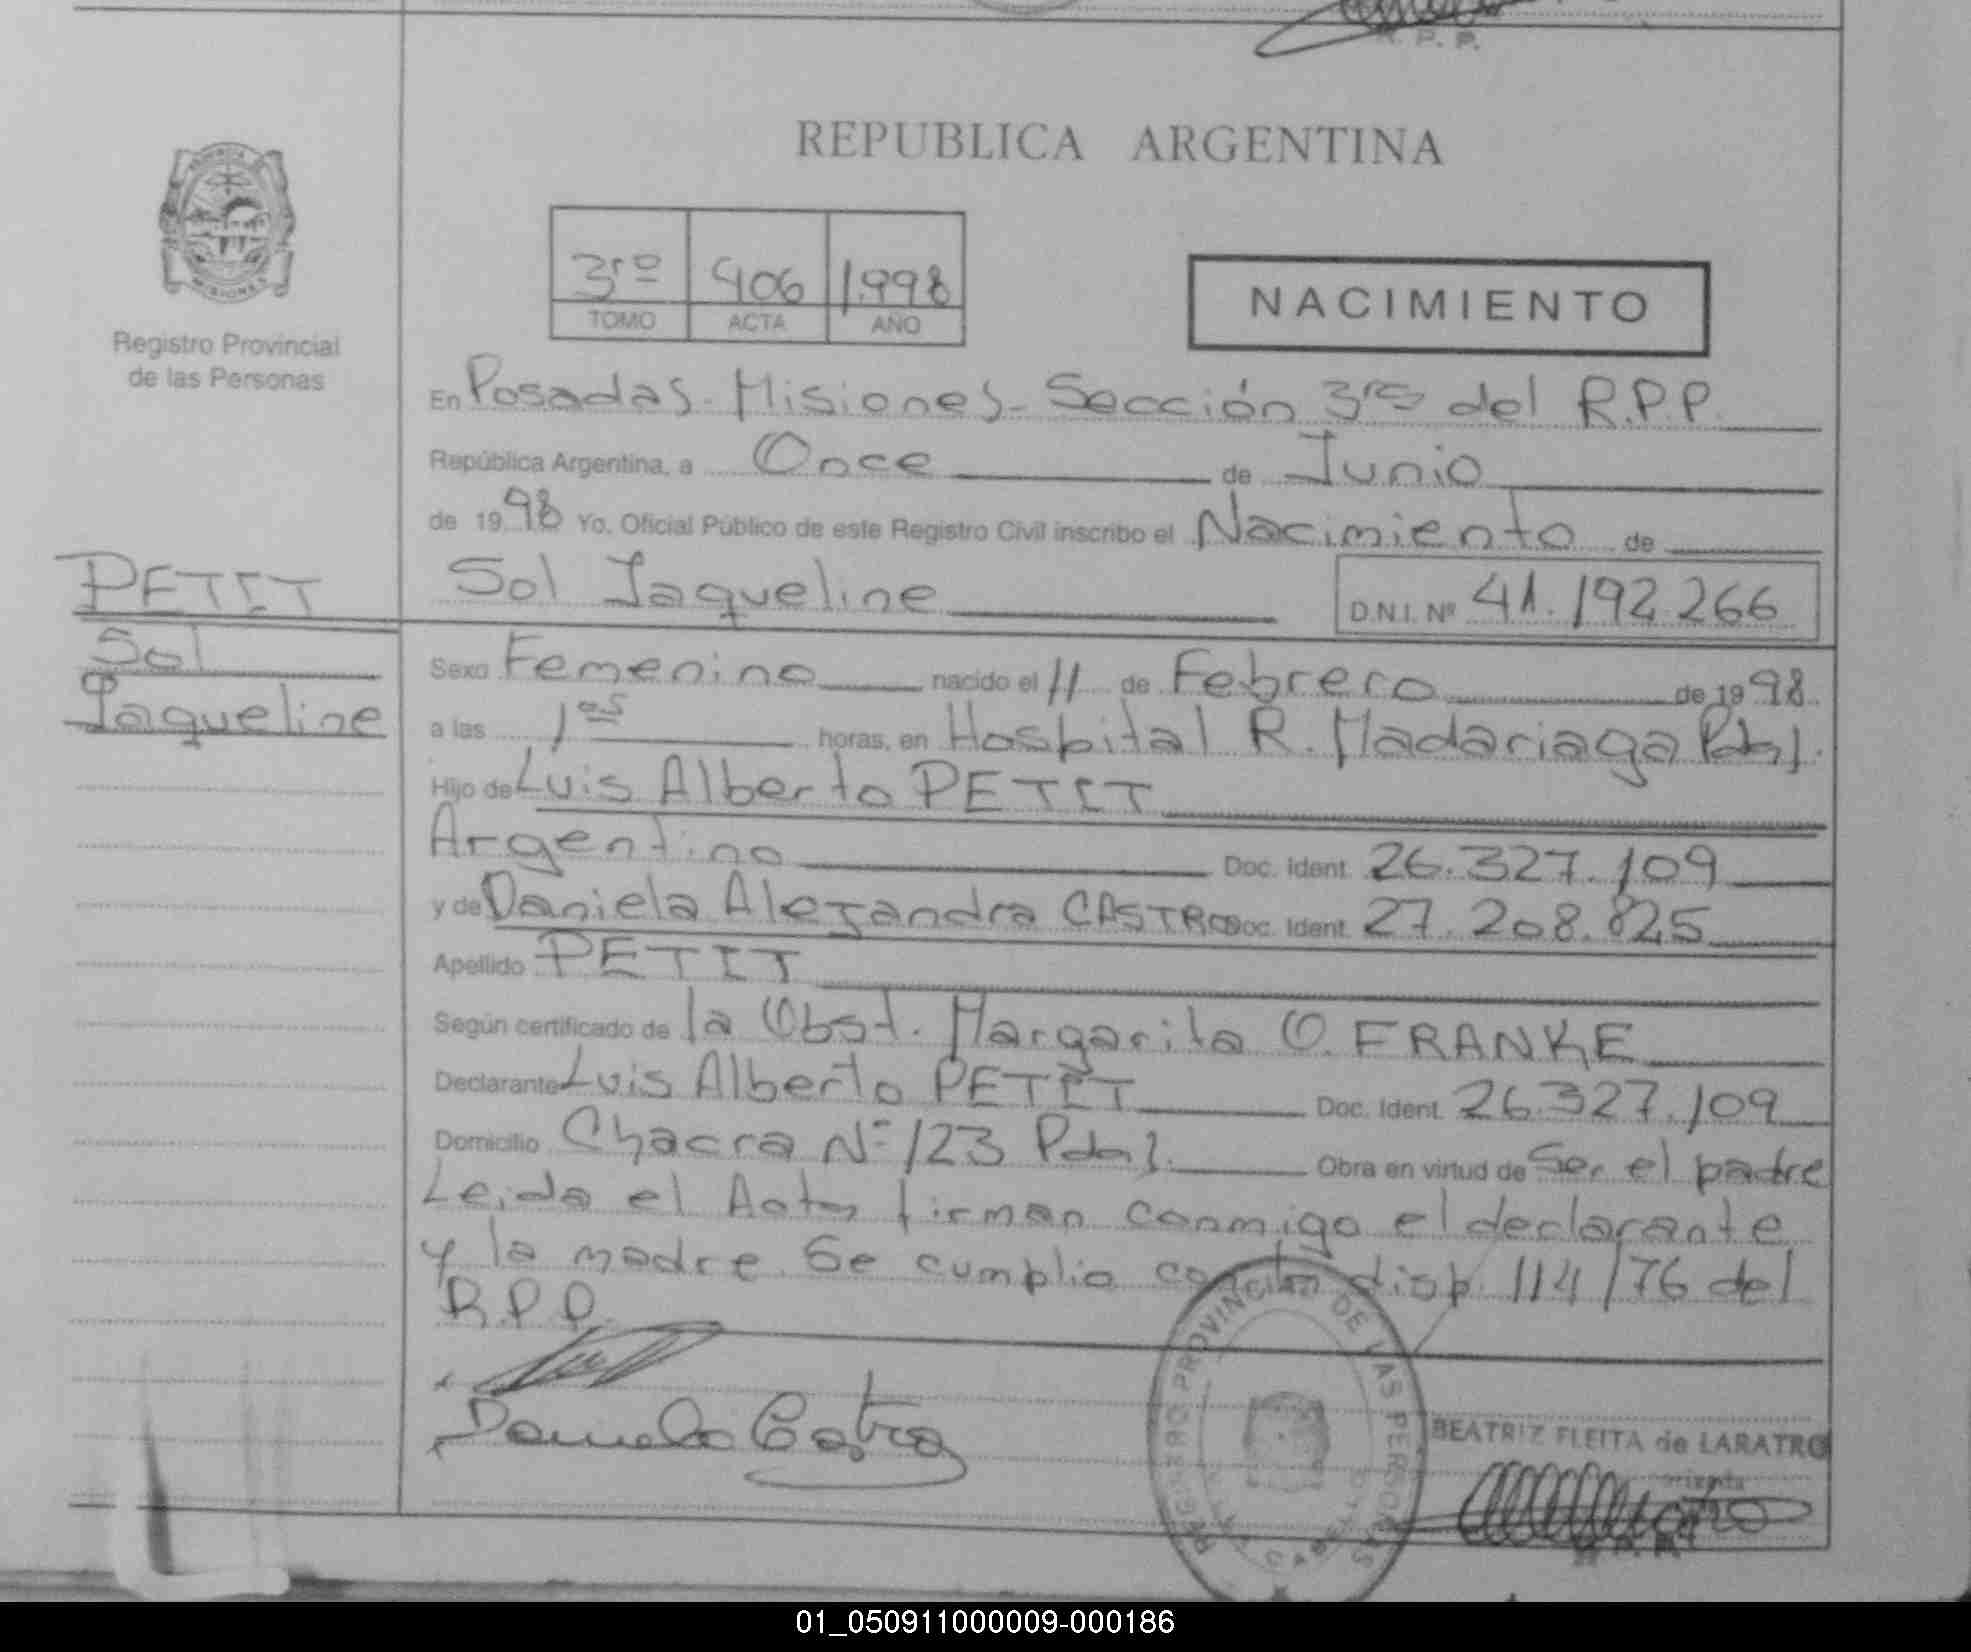 R. P. P.
REPUBLICA ARGENTINA
PROVINCIA
MISIONES
Registro Provincial
de las Personas
3ro 406 1.998
TOMO ACTA AÑO
NACIMIENTO
En Posadas. Misiones. Sección 3ra del R.P.P.
República Argentina, a Once de Junio
de 1998 Yo. Oficial Público de este Registro Civil inscribo el Nacimiento de
Sol Jaqueline D.N.I. Nº 41.192.266
PETIT
Sol
Jaqueline
Sexo Femenino nacido el 11 de Febrero de 1998
a las 1as horas, en Hospital R. Madariaga Pdas.
Hijo de Luis Alberto PETIT
Argentino Doc. Ident. 26.327.109
y de Daniela Alejandra CASTRO Doc. Ident. 27.208.825
Apellido PETIT
Según certificado de la Obst. Margarita O. FRANKE
Declarante Luis Alberto PETIT Doc. Ident. 26.327.109
Domicilio Chacra Nº 123 Pdas. Obra en virtud de Ser el padre
Leida el Acta firman conmigo el declarante
y la madre. Se cumplio con la disp. 114/76 del
R.P.P.
Daniela Castro
REGISTRO PROVINCIAL DE LAS PERSONAS
BEATRIZ FLEITA de LARATRO
01_050911000009-000186